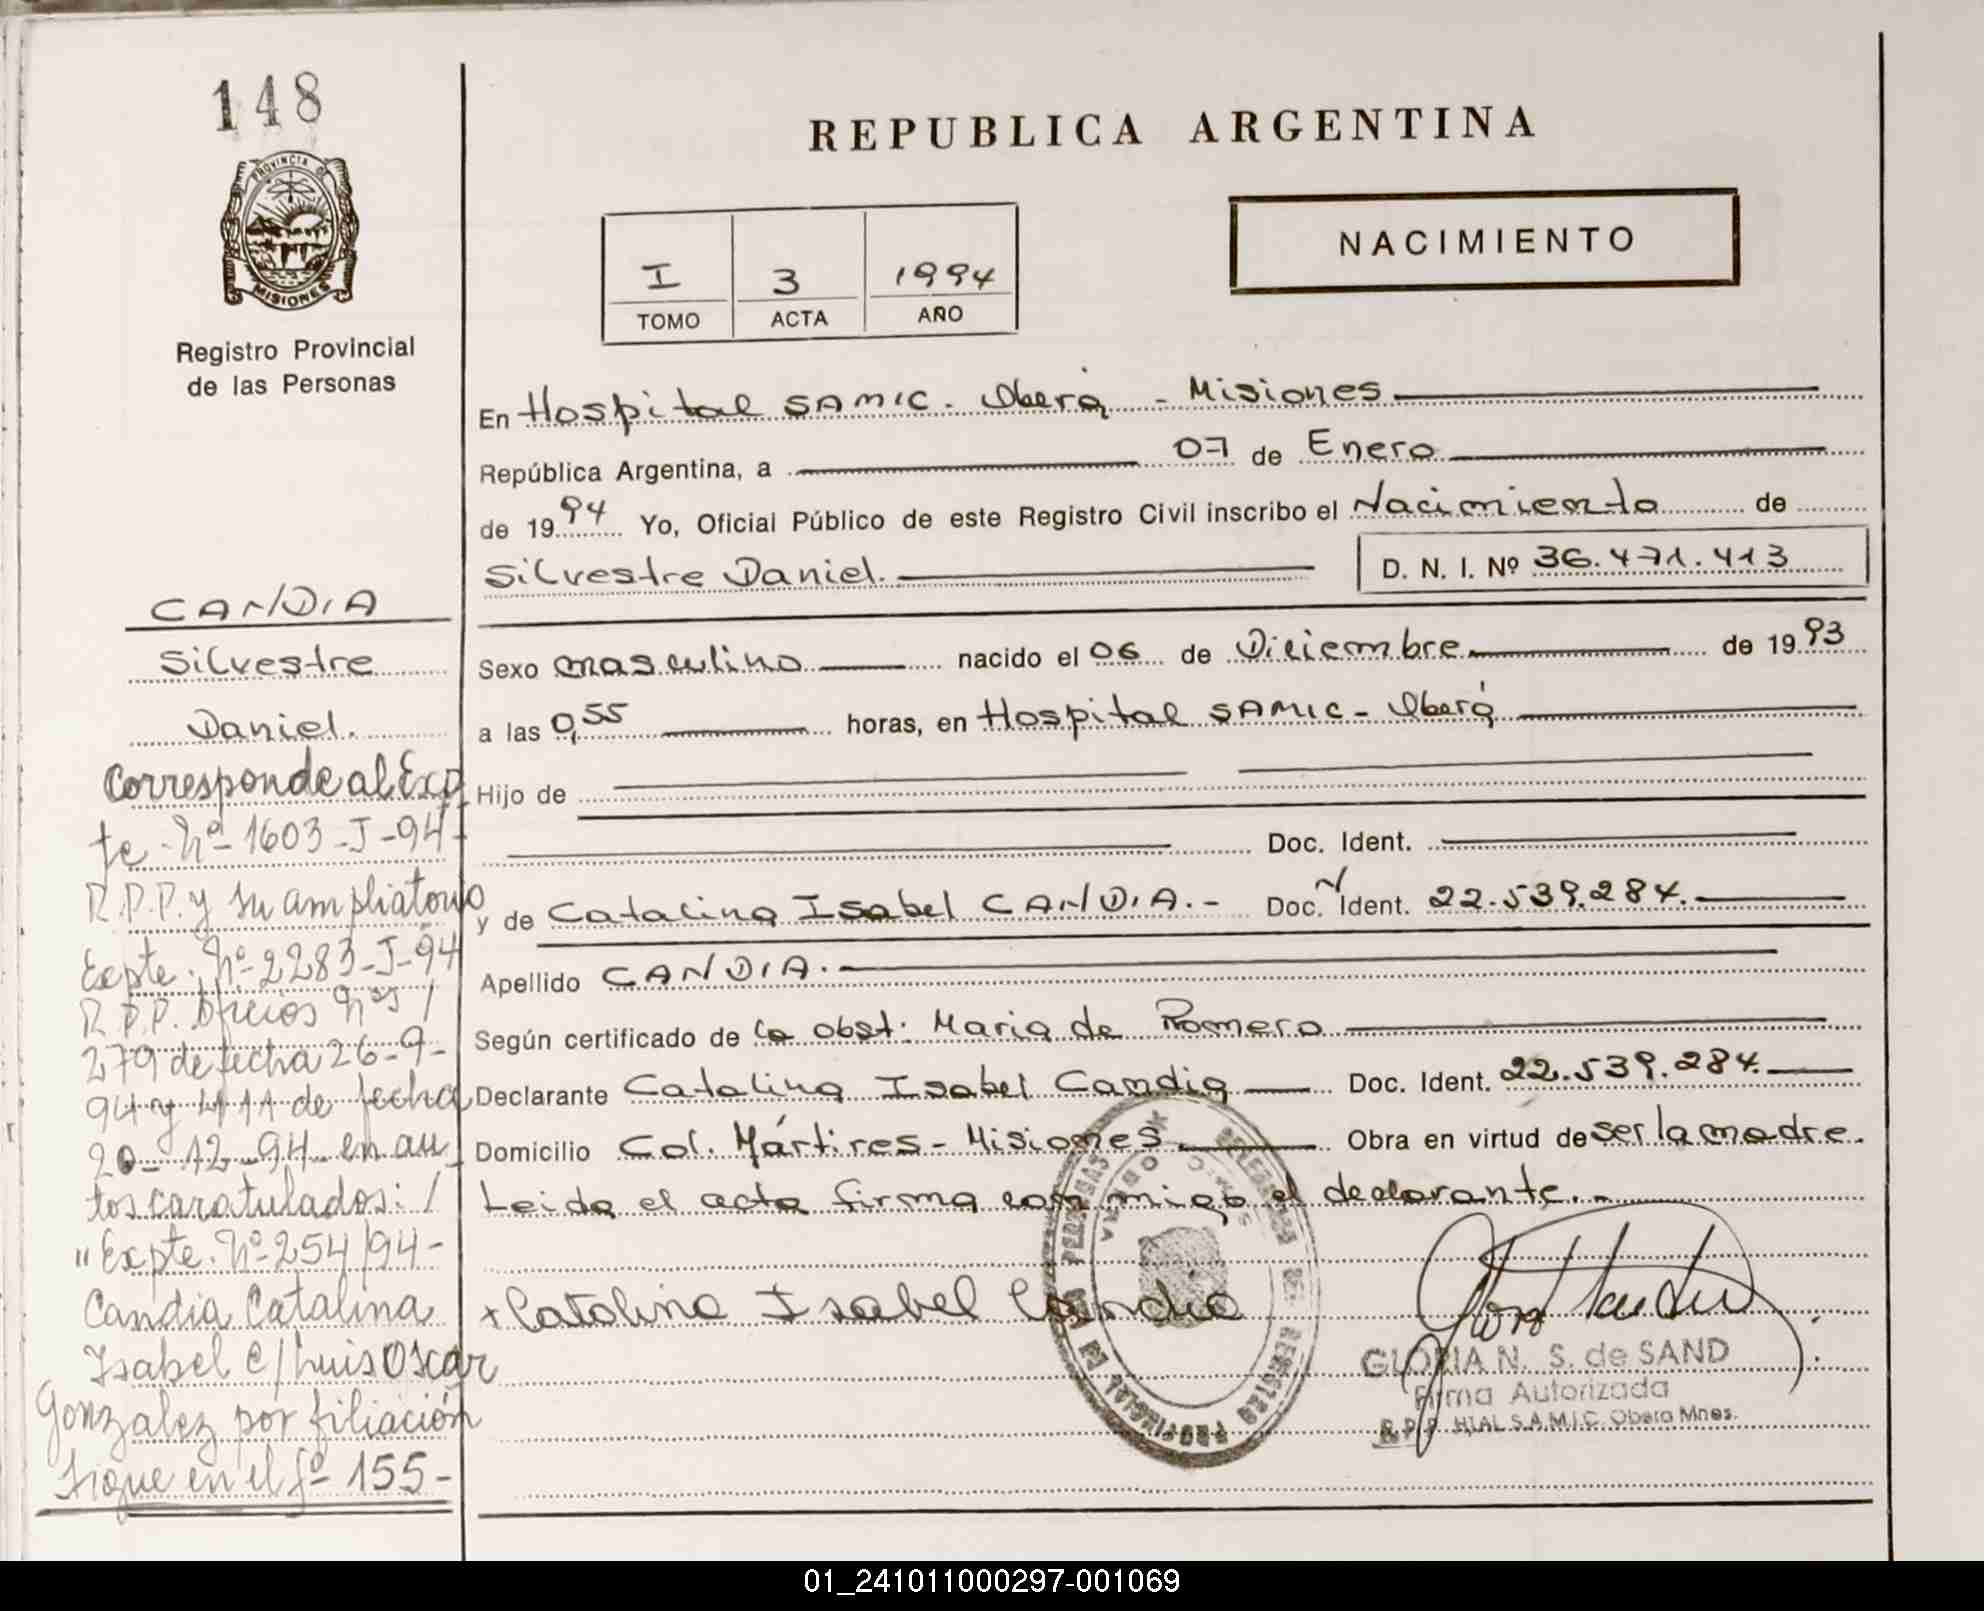 148
PROVINCIA DE
MISIONES
Registro Provincial
de las Personas
REPUBLICA ARGENTINA
I 3 1994
TOMO ACTA AÑO
NACIMIENTO
En Hospital SAMIC. Oberá - Misiones
República Argentina, a 07 de Enero
de 1994 Yo, Oficial Público de este Registro Civil inscribo el Nacimiento de
Silvestre Daniel. D. N. I. Nº 36.471.413
Sexo masculino nacido el 06 de Diciembre de 1993
a las 0,55 horas, en Hospital SAMIC - Oberá
Hijo de
Doc. Ident.
y de Catalina Isabel CANDIA.- Doc. Ident. 22.539.284.
Apellido CANDIA.
Según certificado de la obst. Maria de Romero
Declarante Catalina Isabel Candia Doc. Ident. 22.539.284.
Domicilio Col. Mártires - Misiones Obra en virtud de ser la madre.
Leida el acta firma conmigo el declarante.-
+ Catalina Isabel Candia
GLORIA N. S. de SAND
Firma Autorizada
R.P.P. HIAL S.A.M.I.C. Obera Mnes.
CANDIA
Silvestre
Daniel.
Corresponde al Exp
te. Nº 1603-J-94-
R.P.P. y su ampliatorio
Expte. Nº 2283-J-94
R.P.P. Oficios Nos /
279 de fecha 26-9-
94 y 411 de fecha
20-12-94 en au
tos caratulados: /
"Expte. Nº 254/94-
Candia Catalina
Isabel c/ Luis Oscar
Gonzalez por filiación
Sigue en el fº 155-
01_241011000297-001069